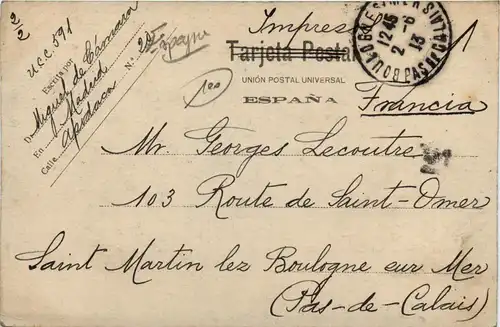 2/2
U.C.C. 591
Escrita por
D. Miguel de Cámara
En Madrid
Calle Apodaca N.° 20
Espagne
100
Impres
Tarjeta Postal
UNIÓN POSTAL UNIVERSAL
ESPAÑA
BOULOGNE S MER
12 45
2 - 6
13
PAS DE CALAIS
1
Francia
Mr. Georges Lecoutre
103 Route de Saint-Omer
Saint Martin lez Boulogne sur Mer
(Pas-de-Calais)